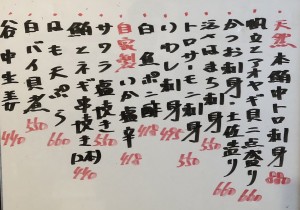 天然 本鮪中トロ刺身 880
帆立とアオヤギ貝二点盛り 880
かつお刺身・土佐造り 660
活〆はまち刺身 550
トロサーモン刺身 550
いわし刺身 495
白魚ポン酢 418
自家製 いか塩辛 418
サワラ塩焼き 550
鮪とネギ串焼き(2本) 440
はも天ぷら 660
白バイ貝煮 550
谷中生姜 440